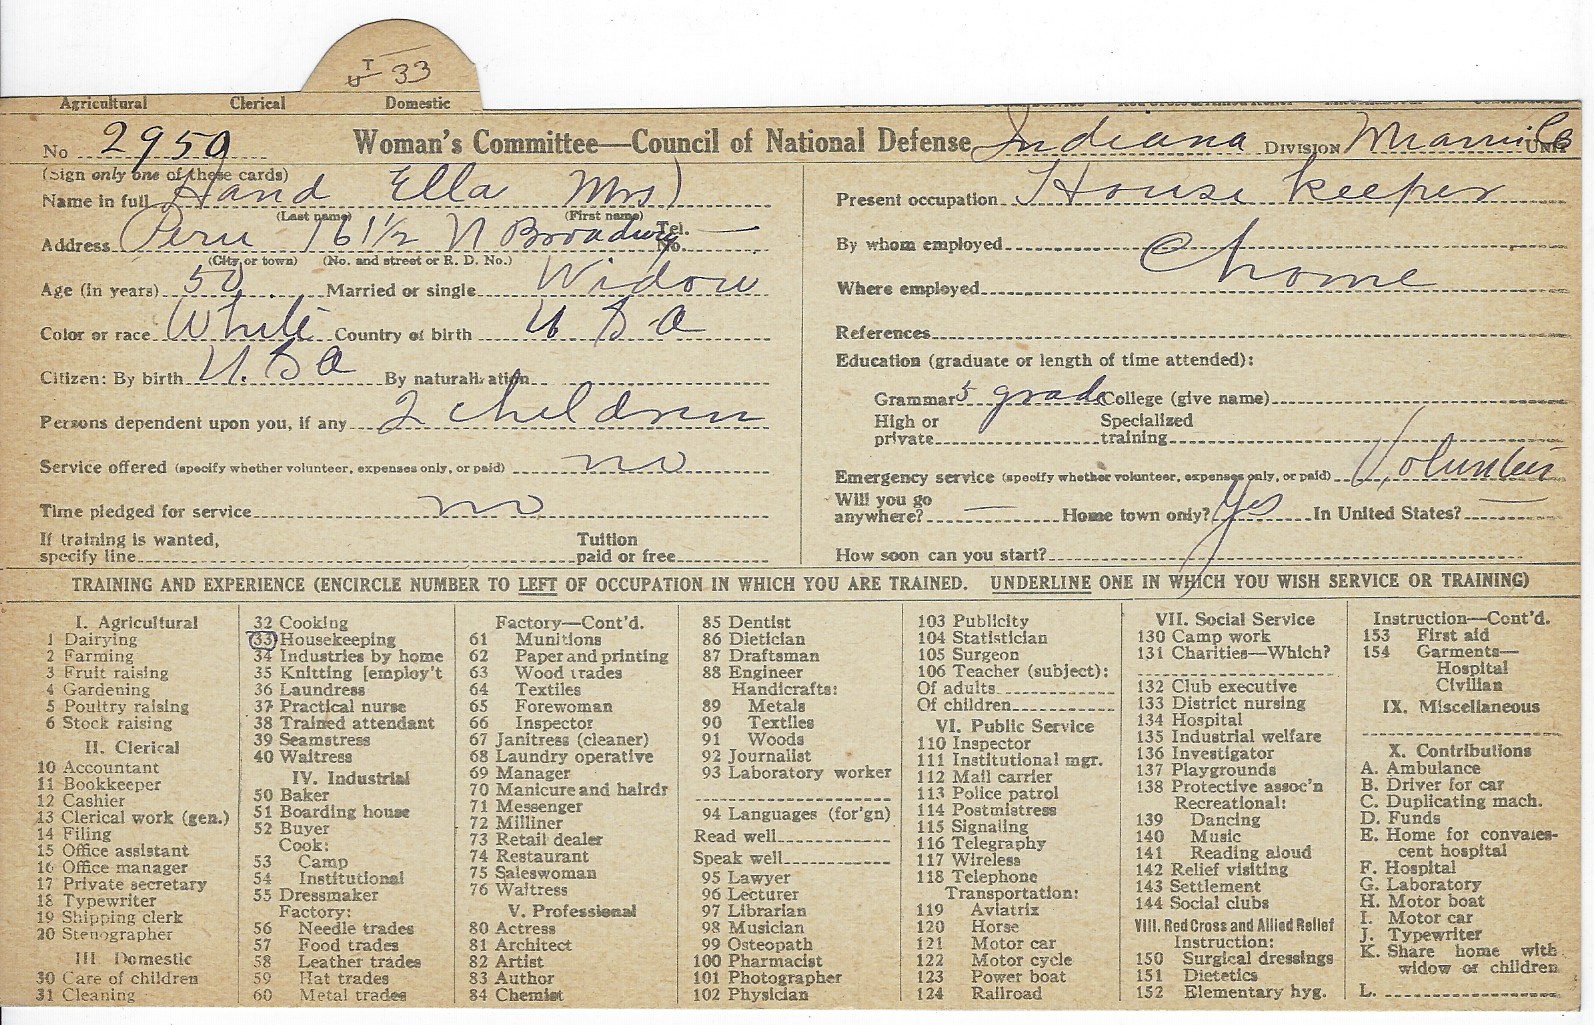 T
U 33
Agricultural Clerical Domestic
No 2950 Woman's Committee—Council of National Defense, Indiana DIVISION Miami Co UNIT
(Sign only one of these cards)
Name in full Hand Ella Mrs)
(Last name) (First name)
Address Peru 16 1/2 N Broadway Tel. No. —
(City or town) (No. and street or R. D. No.)
Age (in years) 50 Married or single Widow
Color or race White Country of birth U S a
Citizen: By birth U. S a By naturalization
Persons dependent upon you, if any 2 children
Service offered (specify whether volunteer, expenses only, or paid) no
Time pledged for service no
If training is wanted, specify line Tuition paid or free
Present occupation House keeper
By whom employed @ home
Where employed
References
Education (graduate or length of time attended):
Grammar 5 grade College (give name)
High or private Specialized training
Emergency service (specify whether volunteer, expenses only, or paid) Volunteer
Will you go anywhere? — Home town only? Yes In United States? —
How soon can you start?
TRAINING AND EXPERIENCE (ENCIRCLE NUMBER TO LEFT OF OCCUPATION IN WHICH YOU ARE TRAINED. UNDERLINE ONE IN WHICH YOU WISH SERVICE OR TRAINING)
I. Agricultural
1 Dairying
2 Farming
3 Fruit raising
4 Gardening
5 Poultry raising
6 Stock raising
II. Clerical
10 Accountant
11 Bookkeeper
12 Cashier
13 Clerical work (gen.)
14 Filing
15 Office assistant
16 Office manager
17 Private secretary
18 Typewriter
19 Shipping clerk
20 Stenographer
III Domestic
30 Care of children
31 Cleaning
32 Cooking
33 Housekeeping
34 Industries by home
35 Knitting [employ't
36 Laundress
37 Practical nurse
38 Trained attendant
39 Seamstress
40 Waitress
IV. Industrial
50 Baker
51 Boarding house
52 Buyer
Cook:
53 Camp
54 Institutional
55 Dressmaker
Factory:
56 Needle trades
57 Food trades
58 Leather trades
59 Hat trades
60 Metal trades
Factory—Cont'd.
61 Munitions
62 Paper and printing
63 Wood trades
64 Textiles
65 Forewoman
66 Inspector
67 Janitress (cleaner)
68 Laundry operative
69 Manager
70 Manicure and hairdr
71 Messenger
72 Milliner
73 Retail dealer
74 Restaurant
75 Saleswoman
76 Waitress
V. Professional
80 Actress
81 Architect
82 Artist
83 Author
84 Chemist
85 Dentist
86 Dietician
87 Draftsman
88 Engineer
Handicrafts:
89 Metals
90 Textiles
91 Woods
92 Journalist
93 Laboratory worker
94 Languages (for'gn)
Read well
Speak well
95 Lawyer
96 Lecturer
97 Librarian
98 Musician
99 Osteopath
100 Pharmacist
101 Photographer
102 Physician
103 Publicity
104 Statistician
105 Surgeon
106 Teacher (subject):
Of adults
Of children
VI. Public Service
110 Inspector
111 Institutional mgr.
112 Mail carrier
113 Police patrol
114 Postmistress
115 Signaling
116 Telegraphy
117 Wireless
118 Telephone
Transportation:
119 Aviatrix
120 Horse
121 Motor car
122 Motor cycle
123 Power boat
124 Railroad
VII. Social Service
130 Camp work
131 Charities—Which?
132 Club executive
133 District nursing
134 Hospital
135 Industrial welfare
136 Investigator
137 Playgrounds
138 Protective assoc'n
Recreational:
139 Dancing
140 Music
141 Reading aloud
142 Relief visiting
143 Settlement
144 Social clubs
VIII. Red Cross and Allied Relief
Instruction:
150 Surgical dressings
151 Dietetics
152 Elementary hyg.
Instruction—Cont'd.
153 First aid
154 Garments—
Hospital
Civilian
IX. Miscellaneous
X. Contributions
A. Ambulance
B. Driver for car
C. Duplicating mach.
D. Funds
E. Home for convales-
cent hospital
F. Hospital
G. Laboratory
H. Motor boat
I. Motor car
J. Typewriter
K. Share home with
widow or children
L.